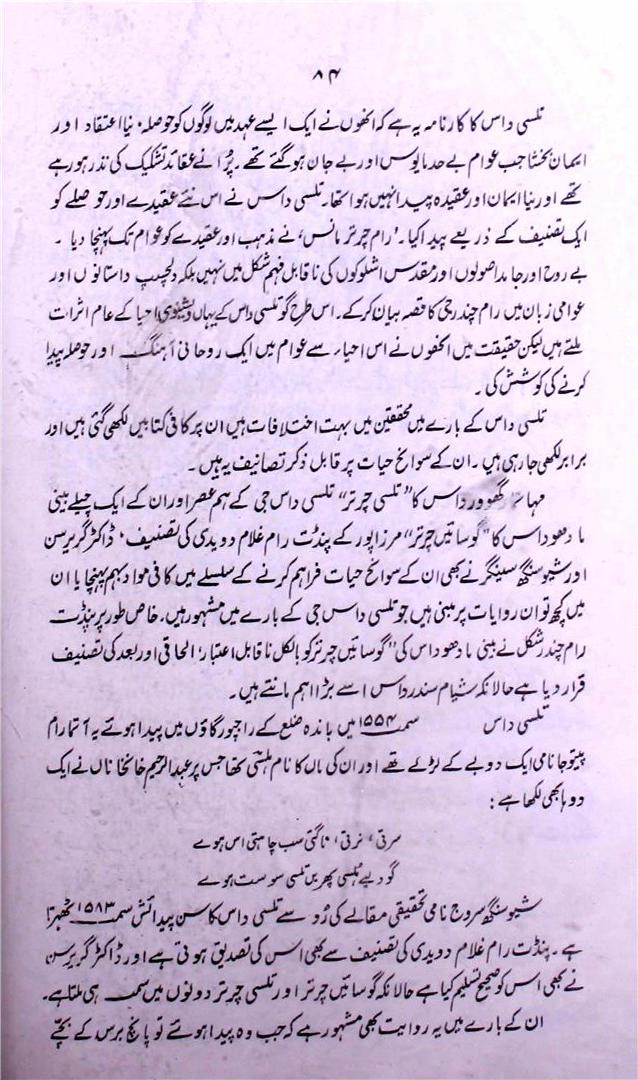 ۸۴
تلسی داس کا کارنامہ یہ ہے کہ انھوں نے ایک ایسے عہد میں لوگوں کو حوصلہ، نیا اعتقاد اور
ایمان بخشا جب عوام بے حد مایوس اور بے جان ہو گئے تھے۔ پُرانے عقائد تشکیک کی نذر ہو رہے
تھے اور نیا ایمان اور عقیدہ پیدا نہیں ہوا تھا۔ تلسی داس نے اس نئے عقیدے اور حوصلے کو
ایک تصنیف کے ذریعے پیدا کیا۔ 'رام چرتر مانس' نے مذہب اور عقیدے کو عوام تک پہنچا دیا۔
بے روح اور جامد اصولوں اور مقدس اشلوکوں کی ناقابل فہم شکل میں نہیں بلکہ دلچسپ داستانوں اور
عوامی زبان میں رام چندر جی کا قصہ بیان کرکے۔ اس طرح گو تلسی داس کے یہاں ویشنوی احیا کے عام اثرات
ملتے ہیں لیکن حقیقت میں انھوں نے اس احیاء سے عوام میں ایک روحانی آہنگ اور حوصلہ پیدا
کرنے کی کوشش کی۔
تلسی داس کے بارے میں محققین میں بہت اختلافات ہیں ان پر کافی کتابیں لکھی گئی ہیں اور
برابر لکھی جا رہی ہیں۔ ان کے سوانح حیات پر قابل ذکر تصانیف یہ ہیں۔
مہاتما رگھوورداس کا "تلسی چرتر" تلسی داس جی کے ہم عصر اور ان کے ایک چیلے بینی
مادھو داس کا "گوسائیں چرتر" مرزا پور کے پنڈت رام غلام دویدی کی تصنیف، ڈاکٹر گریرسن
اور شیو سنگھ سینگر نے بھی ان کے سوانح حیات فراہم کرنے کے سلسلے میں کافی مواد بہم پہنچایا ان
میں کچھ تو ان روایات پر مبنی ہیں جو تلسی داس جی کے بارے میں مشہور ہیں۔ خاص طور پر پنڈت
رام چندر شکل نے بینی مادھو داس کی "گوسائیں چرتر کو بالکل ناقابل اعتبار، الحاقی اور بعد کی تصنیف
قرار دیا ہے حالانکہ شیام سندر داس اسے بڑا اہم مانتے ہیں۔
تلسی داس سمت ۱۵۵۴ میں باندہ ضلع کے راجپور گاؤں میں پیدا ہوئے یہ آتما رام
نامی ایک دوبے کے لڑکے تھے اور ان کی ماں کا نام ہلسی تھا جس پر عبدالرحیم خانخاناں نے ایک
دوہا بھی لکھا ہے:
سرتی، نرتی، ناگتی سب چاہتی اس ہوے
گود لیے ہلسی پھریں تلسی سو ست ہوے
شیو سنگھ سروج نامی تحقیقی مقالے کی رُو سے تلسی داس کا سن پیدائش سمت ۱۵۸۳ ٹھہرتا
ہے۔ پنڈت رام غلام دویدی کی تصنیف سے بھی اس کی تصدیق ہوتی ہے اور ڈاکٹر گریرسن
نے بھی اس کو صحیح تسلیم کیا ہے حالانکہ گوسائیں چرتر اور تلسی چرتر دونوں میں سمت ہی ملتا ہے۔
ان کے بارے میں یہ روایت بھی مشہور ہے کہ جب وہ پیدا ہوئے تو پانچ برس کے بچے